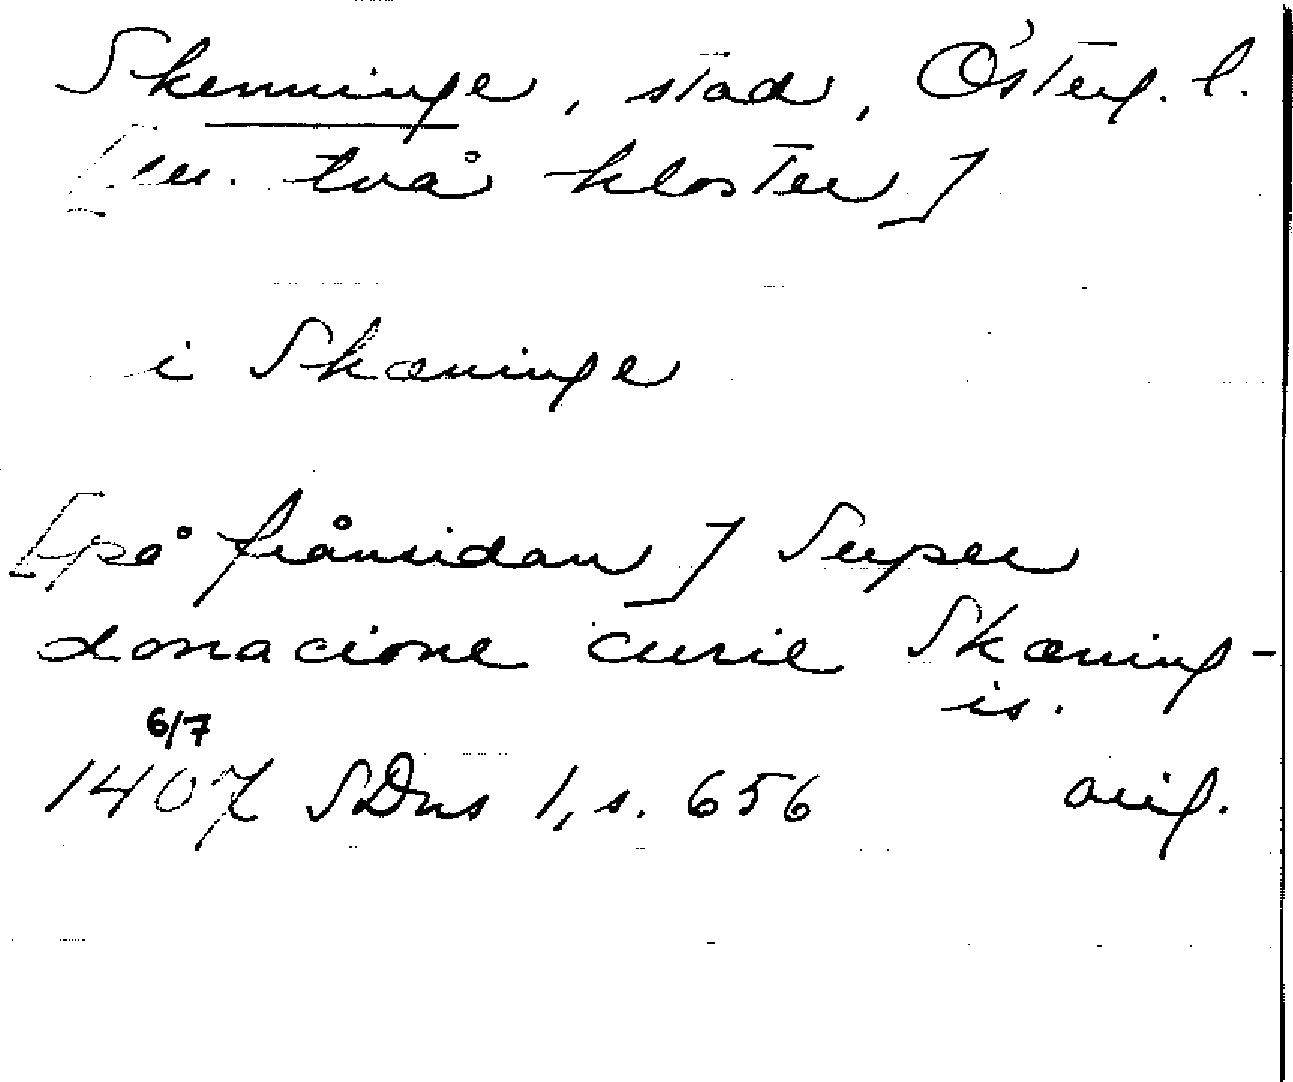 Skenninge, stad, Österg. l.
[m. två kloster]
i Skæninge
[på frånsidan] Super
donacione curie Skæning-
is.
6/7
1407 SDns 1, s. 656 orig.